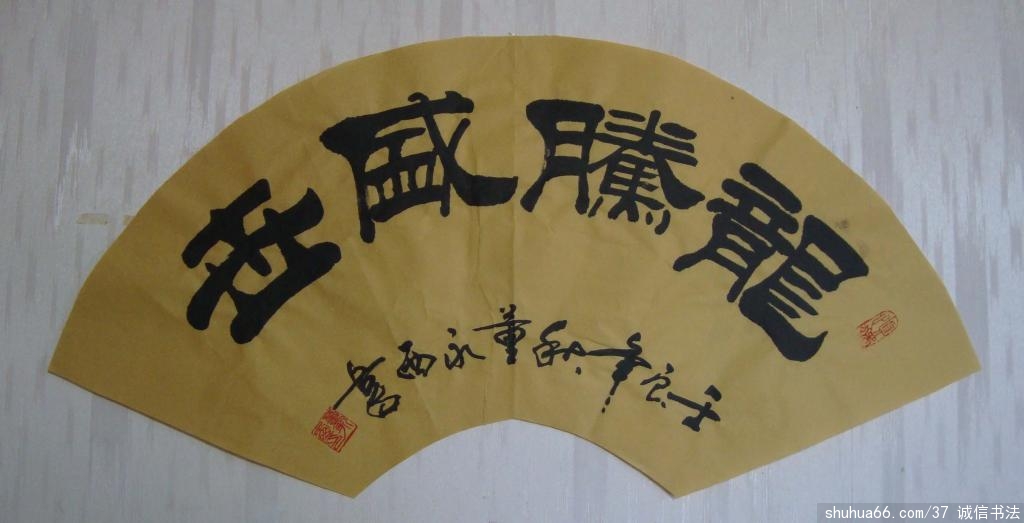 龍騰盛世
壬辰年秋董永西書
shuhua66.com/37 诚信书法